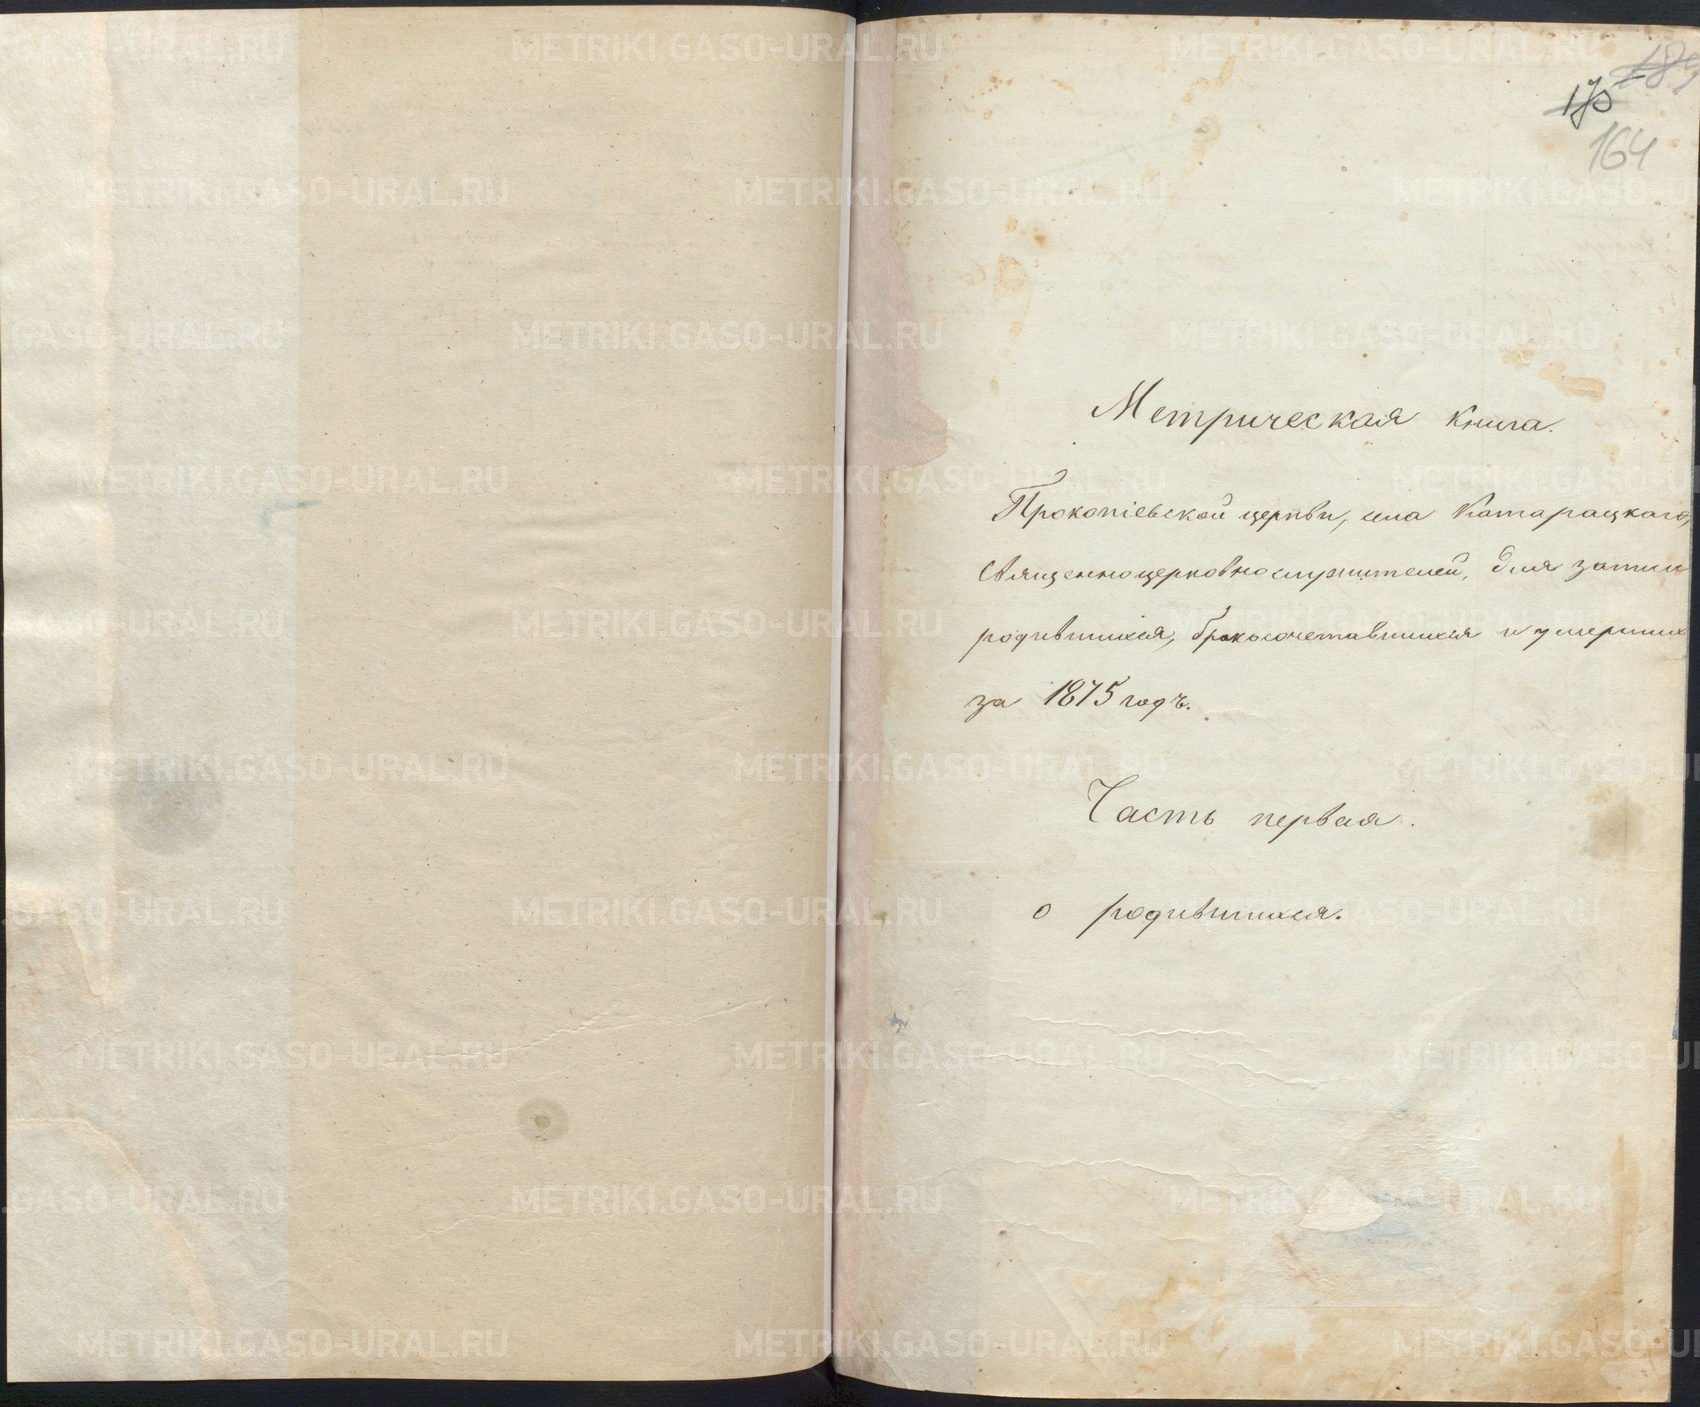 189
170
164
Метрическая книга.
Прокопіевской церкви, села Катарацкаго,
Священноцерковнослужителей, для записи
родившихся, бракосочетавшихся и умерших
за 1875 годъ.
Часть первая.
о родившихся.
METRIKI.GASO-URAL.RU